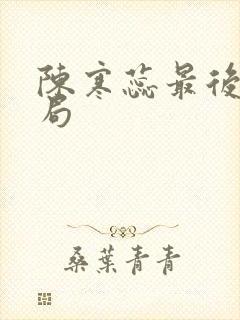 陳寒蕊最後
局
桑葉青青